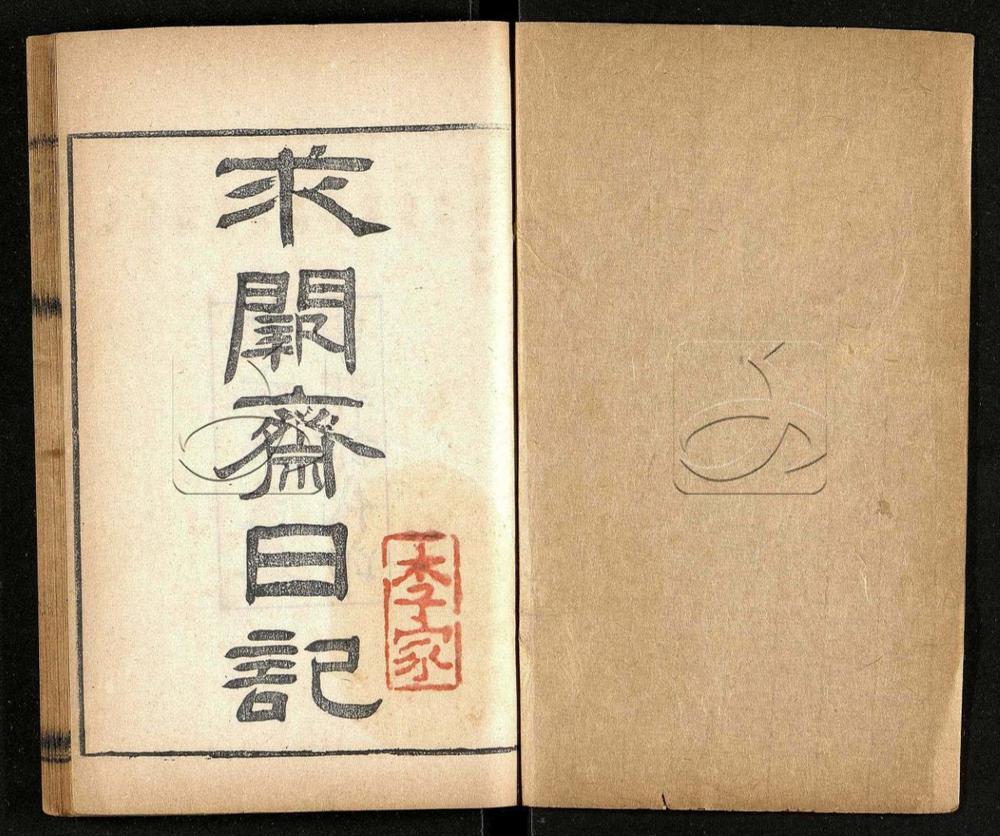 求闕齋日記
李子家